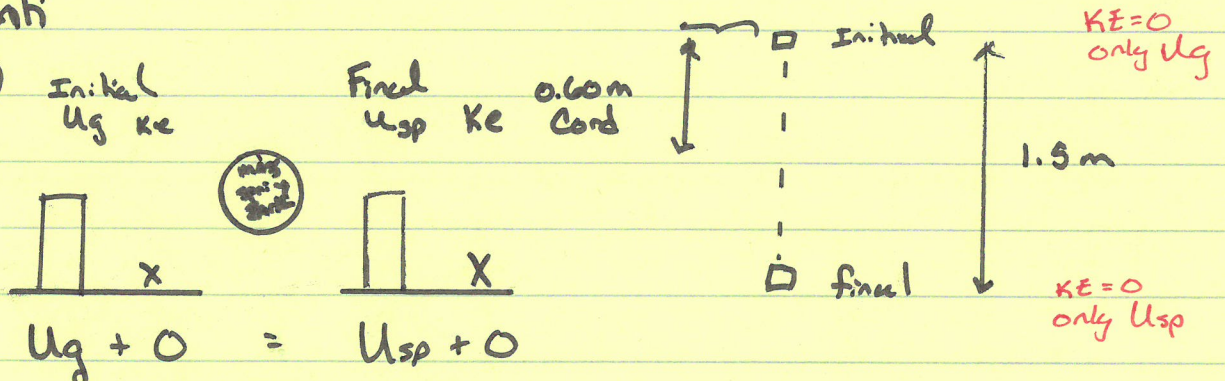 Initial
Ug Ke
Final
Usp Ke
0.60m
Cord
mass
Ug + 0 = Usp + 0
Initial
1.5 m
final
KE=0
only Ug
KE=0
only Usp